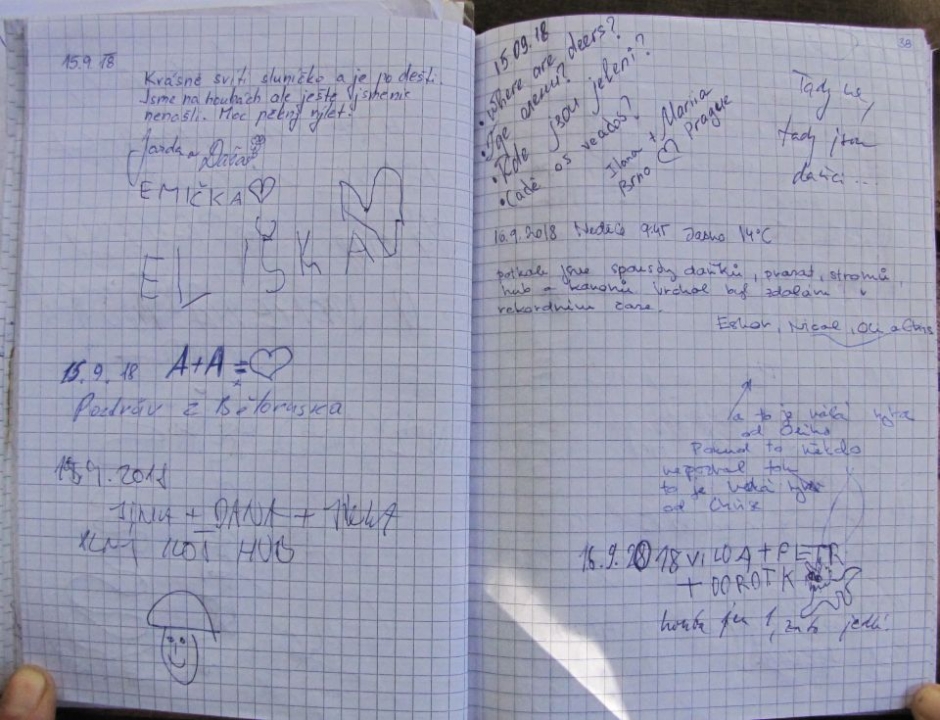 15.9.18
Krásně svítí sluníčko a je po dešti.
Jsme na houbách ale ještě jsme nic
nenašli. Moc pěkný výlet!
Jarda a
EMIČKA
ELIŠKA
15.9.18 A+A=
Pozdrav z Běloruska
9.2018
+ DANA +
HUB
38
15.09.18
• Where are deers?
•
• Kde jsou jeleni?
• Cadê os veados?
Ilana + Mariia
Brno Prague
Tady ne,
tady jsou
daňci...
16.9.2018 Neděle 9:45 Jasno 14°C
potkali jsme spousty daňků, prasat, stromů,
hub a kaňonů vrchol byl zdolán v
rekordním čase.
a to je
od
Pokud to někdo
nepoznal tak
to je velká
od
16.9.2018 VILDA + PETR
+ DOROTK
houba jen 1, zato jedlá!